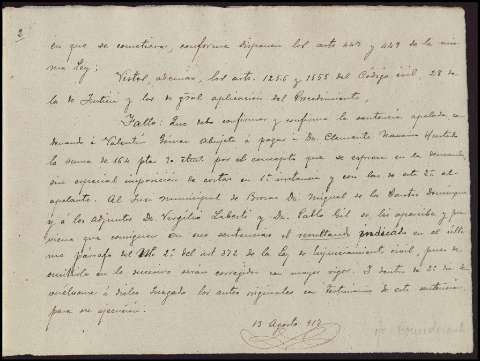 2
en que se cometiera, conforme disponen los arts 447 y 449 de la mis
ma Ley;
Vistos, además, los arts. 1256 y 1555 del Código civil, 28 de
la de Justicia y los de gral aplicación del Procedimiento,
Fallo: Que debo confirmar y confirmo la sentencia apelada, con
denando á Valentín Gómez á pagar á Dn. Clemente Navarro
la suma de 164 ptas por el concepto que se expresa en la demanda,
sin especial imposición de costas en 1ª instancia y con las de esta 2ª al
apelante. Al Juez municipal de Dn. Miguel de los Santos Domínguez
y á los adjuntos Dn. Virgilio y Dn. Pablo Gil se les aperciba y pre
viene que consignen en sus sentencias el resultando indicado en el últi
mo párrafo del 2º del art 372 de la Ley de Enjuiciamiento civil, pues de
omitirlo en lo sucesivo serán corregidos con mayor rigor. Y dentro de 2º día de
vuélvanse á dicho Juzgado los autos originales con testimonio de esta sentencia
para su ejecución.
13 Agosto 917